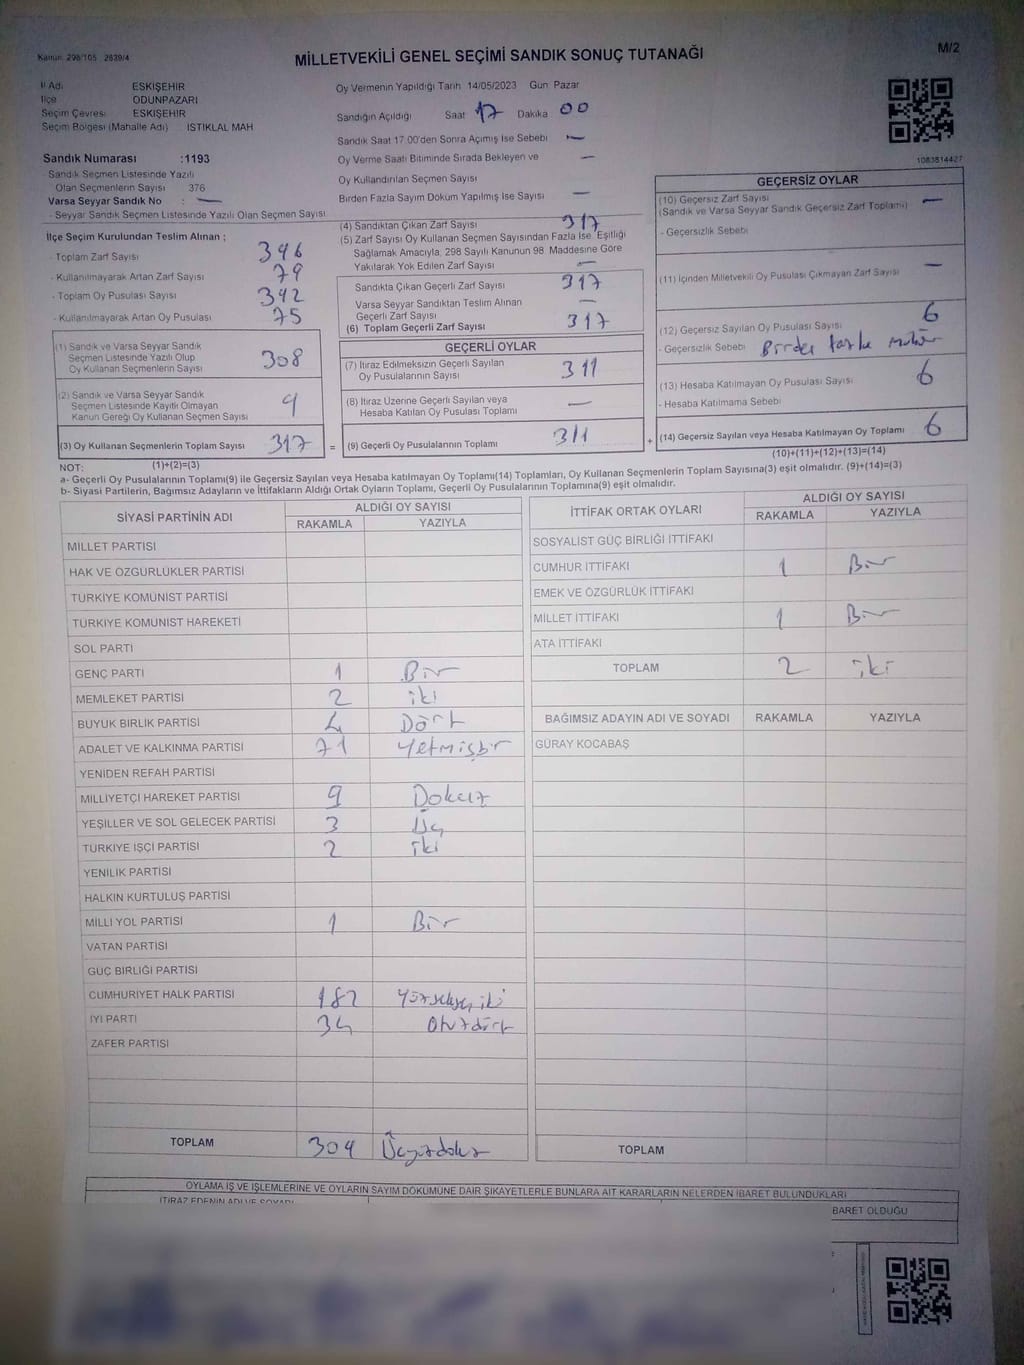 Kanun: 298/105 2839/4
MİLLETVEKİLİ GENEL SEÇİMİ SANDIK SONUÇ TUTANAĞI
M/2
İl Adı ESKİŞEHİR
İlçe ODUNPAZARI
Seçim Çevresi ESKİŞEHİR
Seçim Bölgesi (Mahalle Adı) İSTİKLAL MAH
Sandık Numarası :1193
- Sandık Seçmen Listesinde Yazılı
Olan Seçmenlerin Sayısı 376
Varsa Seyyar Sandık No : —
- Seyyar Sandık Seçmen Listesinde Yazılı Olan Seçmen Sayısı
Oy Vermenin Yapıldığı Tarih 14/05/2023 Gün Pazar
Sandığın Açıldığı Saat 17 Dakika 00
Sandık Saat 17.00'den Sonra Açılmış İse Sebebi —
Oy Verme Saati Bitiminde Sırada Bekleyen ve —
Oy Kullandırılan Seçmen Sayısı
Birden Fazla Sayım Döküm Yapılmış İse Sayısı —
1083814427
İlçe Seçim Kurulundan Teslim Alınan ;
- Toplam Zarf Sayısı 396
- Kullanılmayarak Artan Zarf Sayısı 79
- Toplam Oy Pusulası Sayısı 392
- Kullanılmayarak Artan Oy Pusulası 75
(1) Sandık ve Varsa Seyyar Sandık
Seçmen Listesinde Yazılı Olup
Oy Kullanan Seçmenlerin Sayısı 308
(2) Sandık ve Varsa Seyyar Sandık
Seçmen Listesinde Kayıtlı Olmayan
Kanun Gereği Oy Kullanan Seçmen Sayısı 9
(3) Oy Kullanan Seçmenlerin Toplam Sayısı 317
(1)+(2)=(3)
(4) Sandıktan Çıkan Zarf Sayısı 317
(5) Zarf Sayısı Oy Kullanan Seçmen Sayısından Fazla İse, Eşitliği
Sağlamak Amacıyla, 298 Sayılı Kanunun 98. Maddesine Göre
Yakılarak Yok Edilen Zarf Sayısı —
Sandıkta Çıkan Geçerli Zarf Sayısı 317
Varsa Seyyar Sandıktan Teslim Alınan
Geçerli Zarf Sayısı —
(6) Toplam Geçerli Zarf Sayısı 317
GEÇERLİ OYLAR
(7) İtiraz Edilmeksizin Geçerli Sayılan
Oy Pusulalarının Sayısı 311
(8) İtiraz Üzerine Geçerli Sayılan veya
Hesaba Katılan Oy Pusulası Toplamı —
= (9) Geçerli Oy Pusulalarının Toplamı 311
GEÇERSİZ OYLAR
(10) Geçersiz Zarf Sayısı —
(Sandık ve Varsa Seyyar Sandık Geçersiz Zarf Toplamı)
- Geçersizlik Sebebi
(11) İçinden Milletvekili Oy Pusulası Çıkmayan Zarf Sayısı —
(12) Geçersiz Sayılan Oy Pusulası Sayısı 6
- Geçersizlik Sebebi Birden fazla mühür
(13) Hesaba Katılmayan Oy Pusulası Sayısı 6
- Hesaba Katılmama Sebebi
+ (14) Geçersiz Sayılan veya Hesaba Katılmayan Oy Toplamı 6
(10)+(11)+(12)+(13)=(14)
NOT:
a- Geçerli Oy Pusulalarının Toplamı(9) ile Geçersiz Sayılan veya Hesaba katılmayan Oy Toplamı(14) Toplamları, Oy Kullanan Seçmenlerin Toplam Sayısına(3) eşit olmalıdır. (9)+(14)=(3)
b- Siyasi Partilerin, Bağımsız Adayların ve İttifakların Aldığı Ortak Oyların Toplamı, Geçerli Oy Pusulalarının Toplamına(9) eşit olmalıdır.
SİYASİ PARTİNİN ADI ALDIĞI OY SAYISI
RAKAMLA YAZIYLA
MİLLET PARTİSİ
HAK VE ÖZGÜRLÜKLER PARTİSİ
TÜRKİYE KOMÜNİST PARTİSİ
TÜRKİYE KOMÜNİST HAREKETİ
SOL PARTİ
GENÇ PARTİ 1 Bir
MEMLEKET PARTİSİ 2 iki
BÜYÜK BİRLİK PARTİSİ 4 Dört
ADALET VE KALKINMA PARTİSİ 71 Yetmişbir
YENİDEN REFAH PARTİSİ
MİLLİYETÇİ HAREKET PARTİSİ 9 Dokuz
YEŞİLLER VE SOL GELECEK PARTİSİ 3 Üç
TÜRKİYE İŞÇİ PARTİSİ 2 iki
YENİLİK PARTİSİ
HALKIN KURTULUŞ PARTİSİ
MİLLİ YOL PARTİSİ 1 Bir
VATAN PARTİSİ
GÜÇ BİRLİĞİ PARTİSİ
CUMHURİYET HALK PARTİSİ 182 Yüzsekseniki
İYİ PARTİ 34 Otuzdört
ZAFER PARTİSİ
TOPLAM 309 Üçyüzdokuz
İTTİFAK ORTAK OYLARI ALDIĞI OY SAYISI
RAKAMLA YAZIYLA
SOSYALİST GÜÇ BİRLİĞİ İTTİFAKI
CUMHUR İTTİFAKI 1 Bir
EMEK VE ÖZGÜRLÜK İTTİFAKI
MİLLET İTTİFAKI 1 Bir
ATA İTTİFAKI
TOPLAM 2 iki
BAĞIMSIZ ADAYIN ADI VE SOYADI RAKAMLA YAZIYLA
GÜRAY KOCABAŞ
TOPLAM
OYLAMA İŞ VE İŞLEMLERİNE VE OYLARIN SAYIM DÖKÜMÜNE DAİR ŞİKAYETLERLE BUNLARA AİT KARARLARIN NELERDEN İBARET BULUNDUKLARI
İTİRAZ EDENİN ADI VE SOYADI
BARET OLDUĞU